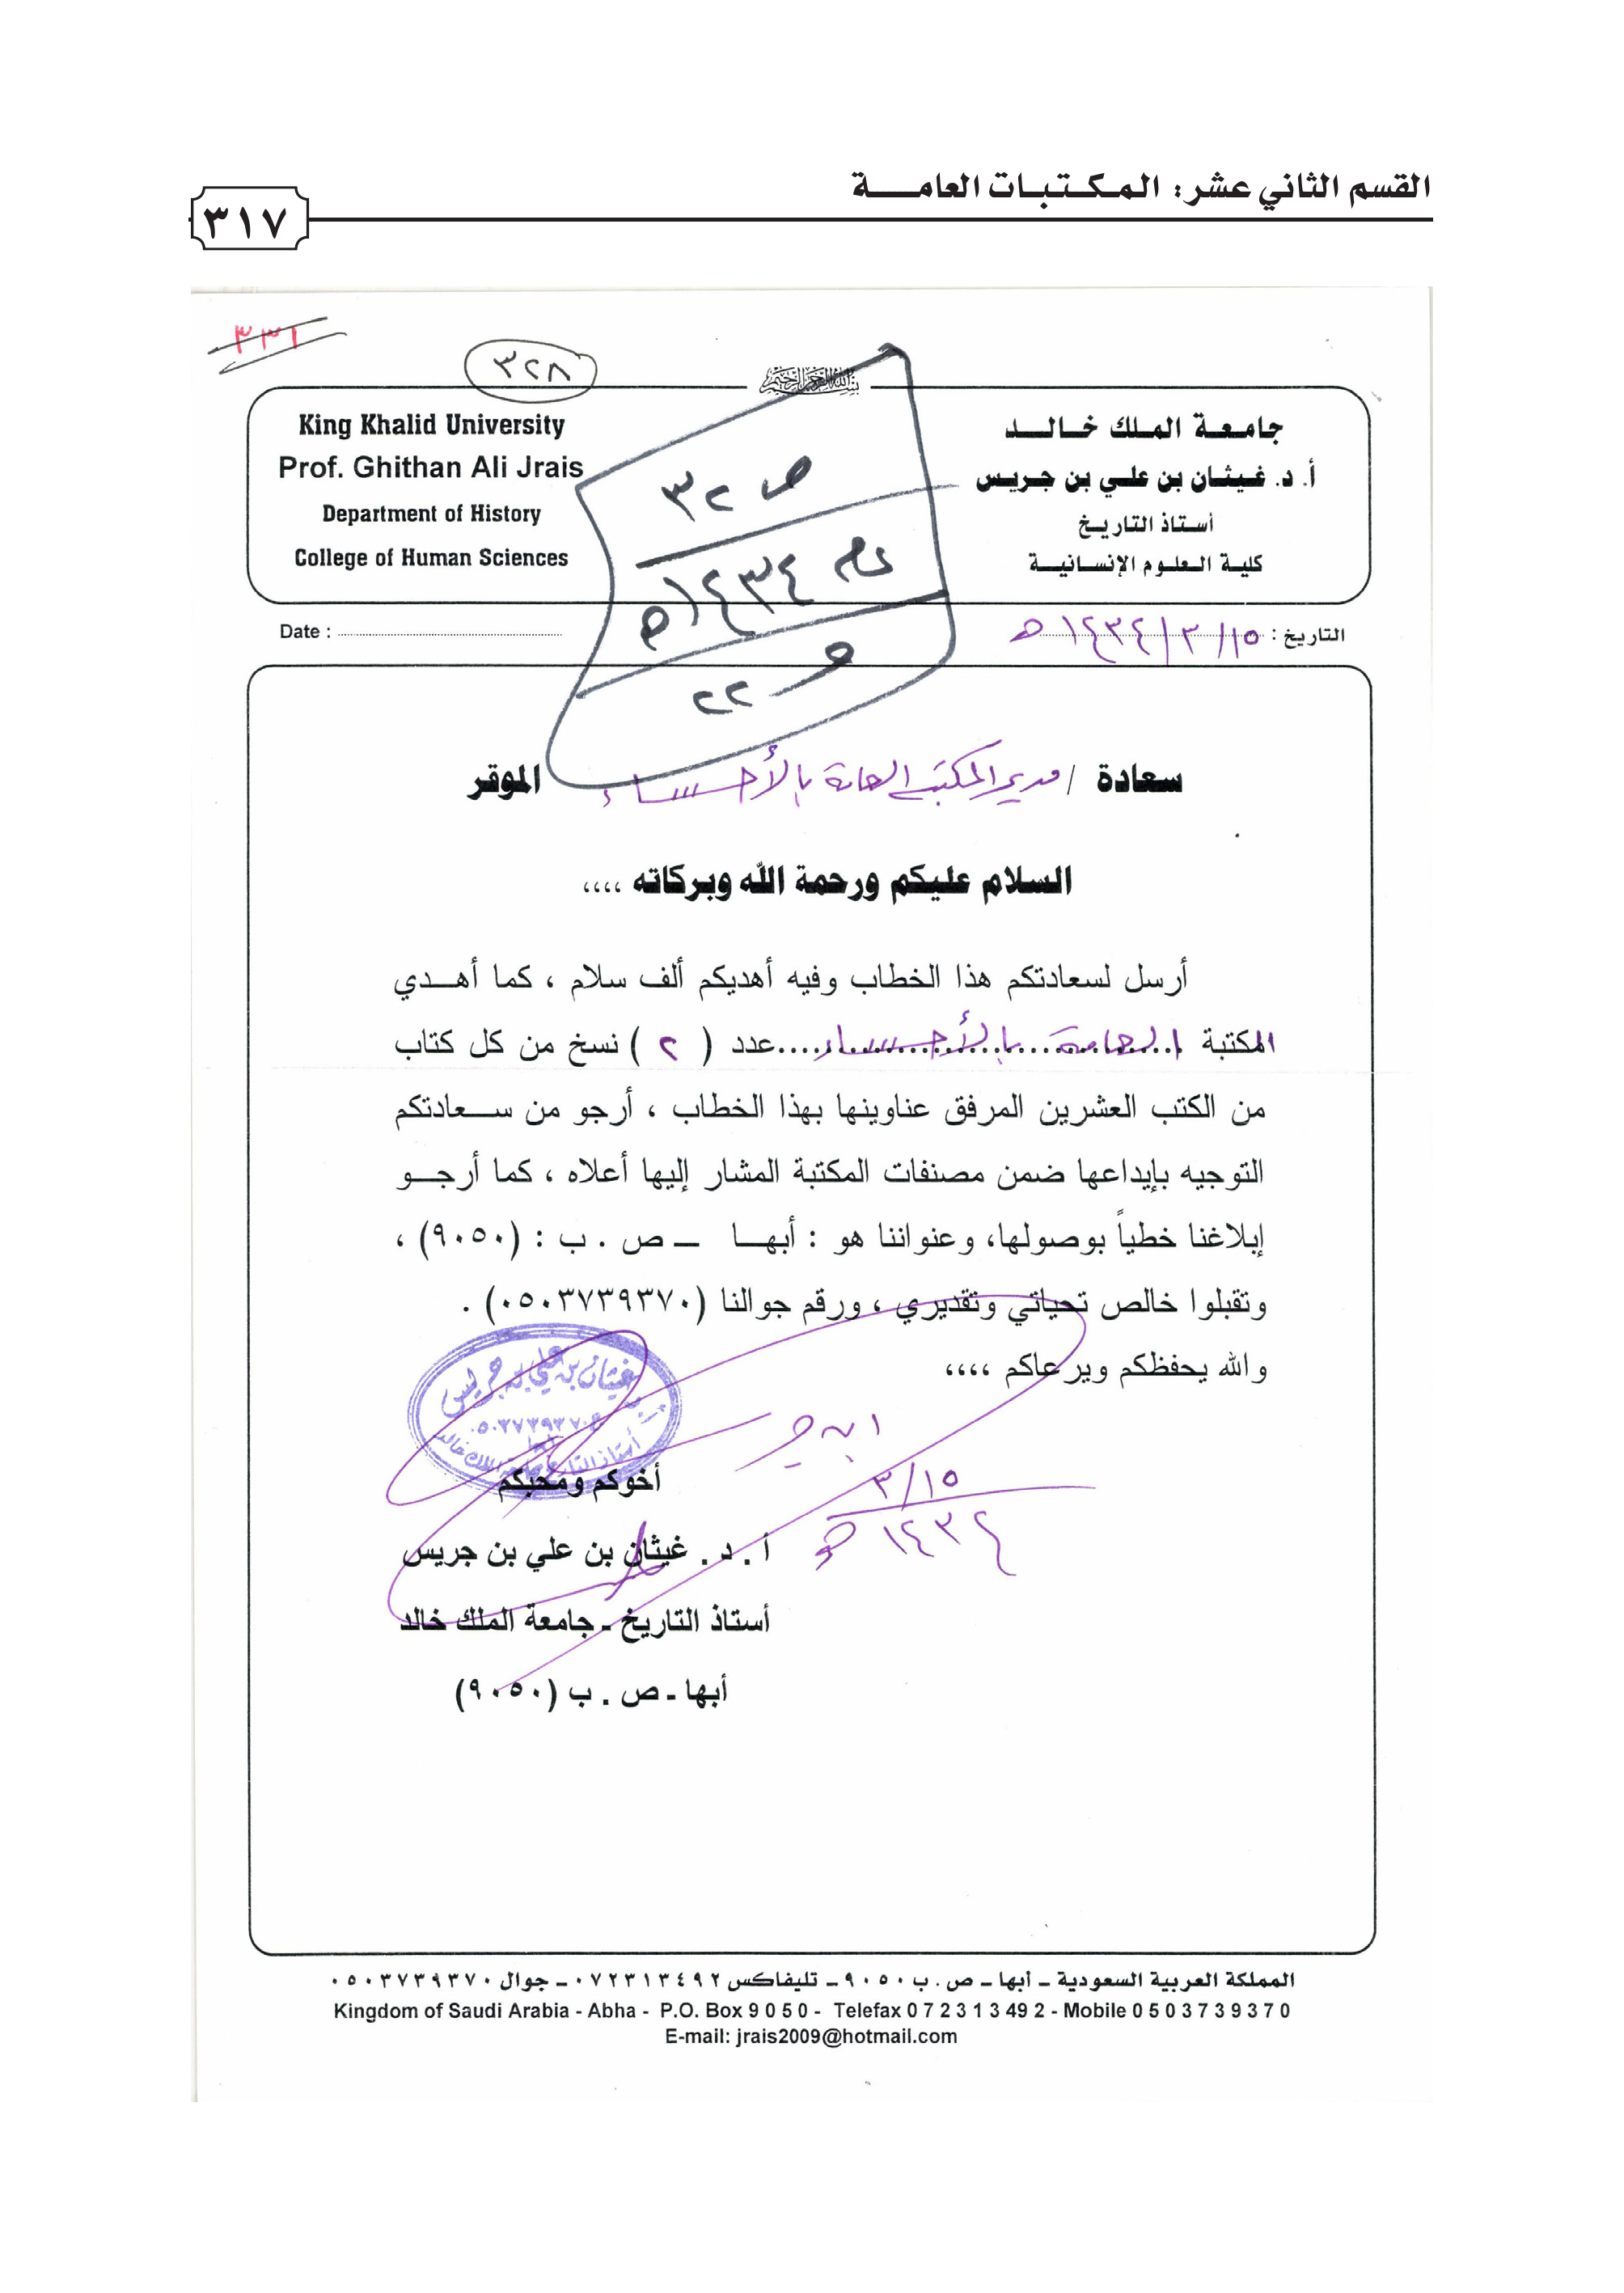 القسم الثاني عشر: المكتبات العامة
٣١٧
٣٣١
٣٢٨
بسم الله الرحمن الرحيم
جامعة الملك خالد
أ. د. غيثان بن علي بن جريس
أستاذ التاريخ
كلية العلوم الإنسانية
King Khalid University
Prof. Ghithan Ali Jrais
Department of History
College of Human Sciences
ص ٣٢
عام ١٤٣٤هـ
٢٢
التاريخ : ١٥/ ٣ / ١٤٣٤هـ
Date :
سعادة / مدير المكتبة العامة بالأحساء الموقر
السلام عليكم ورحمة الله وبركاته ،،،،
أرسل لسعادتكم هذا الخطاب وفيه أهديكم ألف سلام ، كما أهدي
المكتبة العامة بالأحساء عدد ( ٢ ) نسخ من كل كتاب
من الكتب العشرين المرفق عناوينها بهذا الخطاب ، أرجو من سعادتكم
التوجيه بإيداعها ضمن مصنفات المكتبة المشار إليها أعلاه ، كما أرجو
إبلاغنا خطياً بوصولها، وعنواننا هو : أبها – ص . ب : (٩٠٥٠) ،
وتقبلوا خالص تحياتي وتقديري ، ورقم جوالنا (٠٥٠٣٧٣٩٣٧٠) .
والله يحفظكم ويرعاكم ،،،،
غيثان بن علي بن جريس
أستاذ التاريخ بجامعة الملك خالد
ابن جريس
١٥/٣
١٤٣٤هـ
أخوكم ومحبكم
أ . د . غيثان بن علي بن جريس
أستاذ التاريخ ـ جامعة الملك خالد
أبها ـ ص . ب (٩٠٥٠)
المملكة العربية السعودية – أبها – ص . ب ٩٠٥٠ – تليفاكس ٠٧٢٣١٣٤٩٢ – جوال ٠٥٠٣٧٣٩٣٧٠
Kingdom of Saudi Arabia - Abha - P.O. Box 9 0 5 0 - Telefax 0 7 2 3 1 3 49 2 - Mobile 0 5 0 3 7 3 9 3 7 0
E-mail: jrais2009@hotmail.com